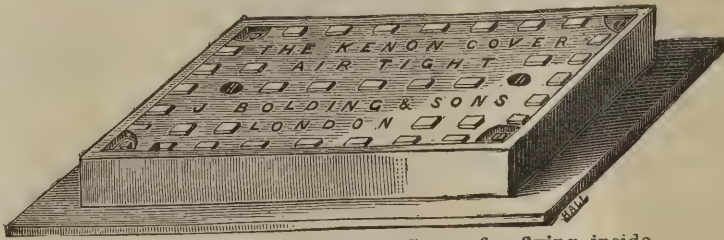 THE KENON COVER
AIR TIGHT
J BOLDING & SONS
LONDON
HALL
fixing inside